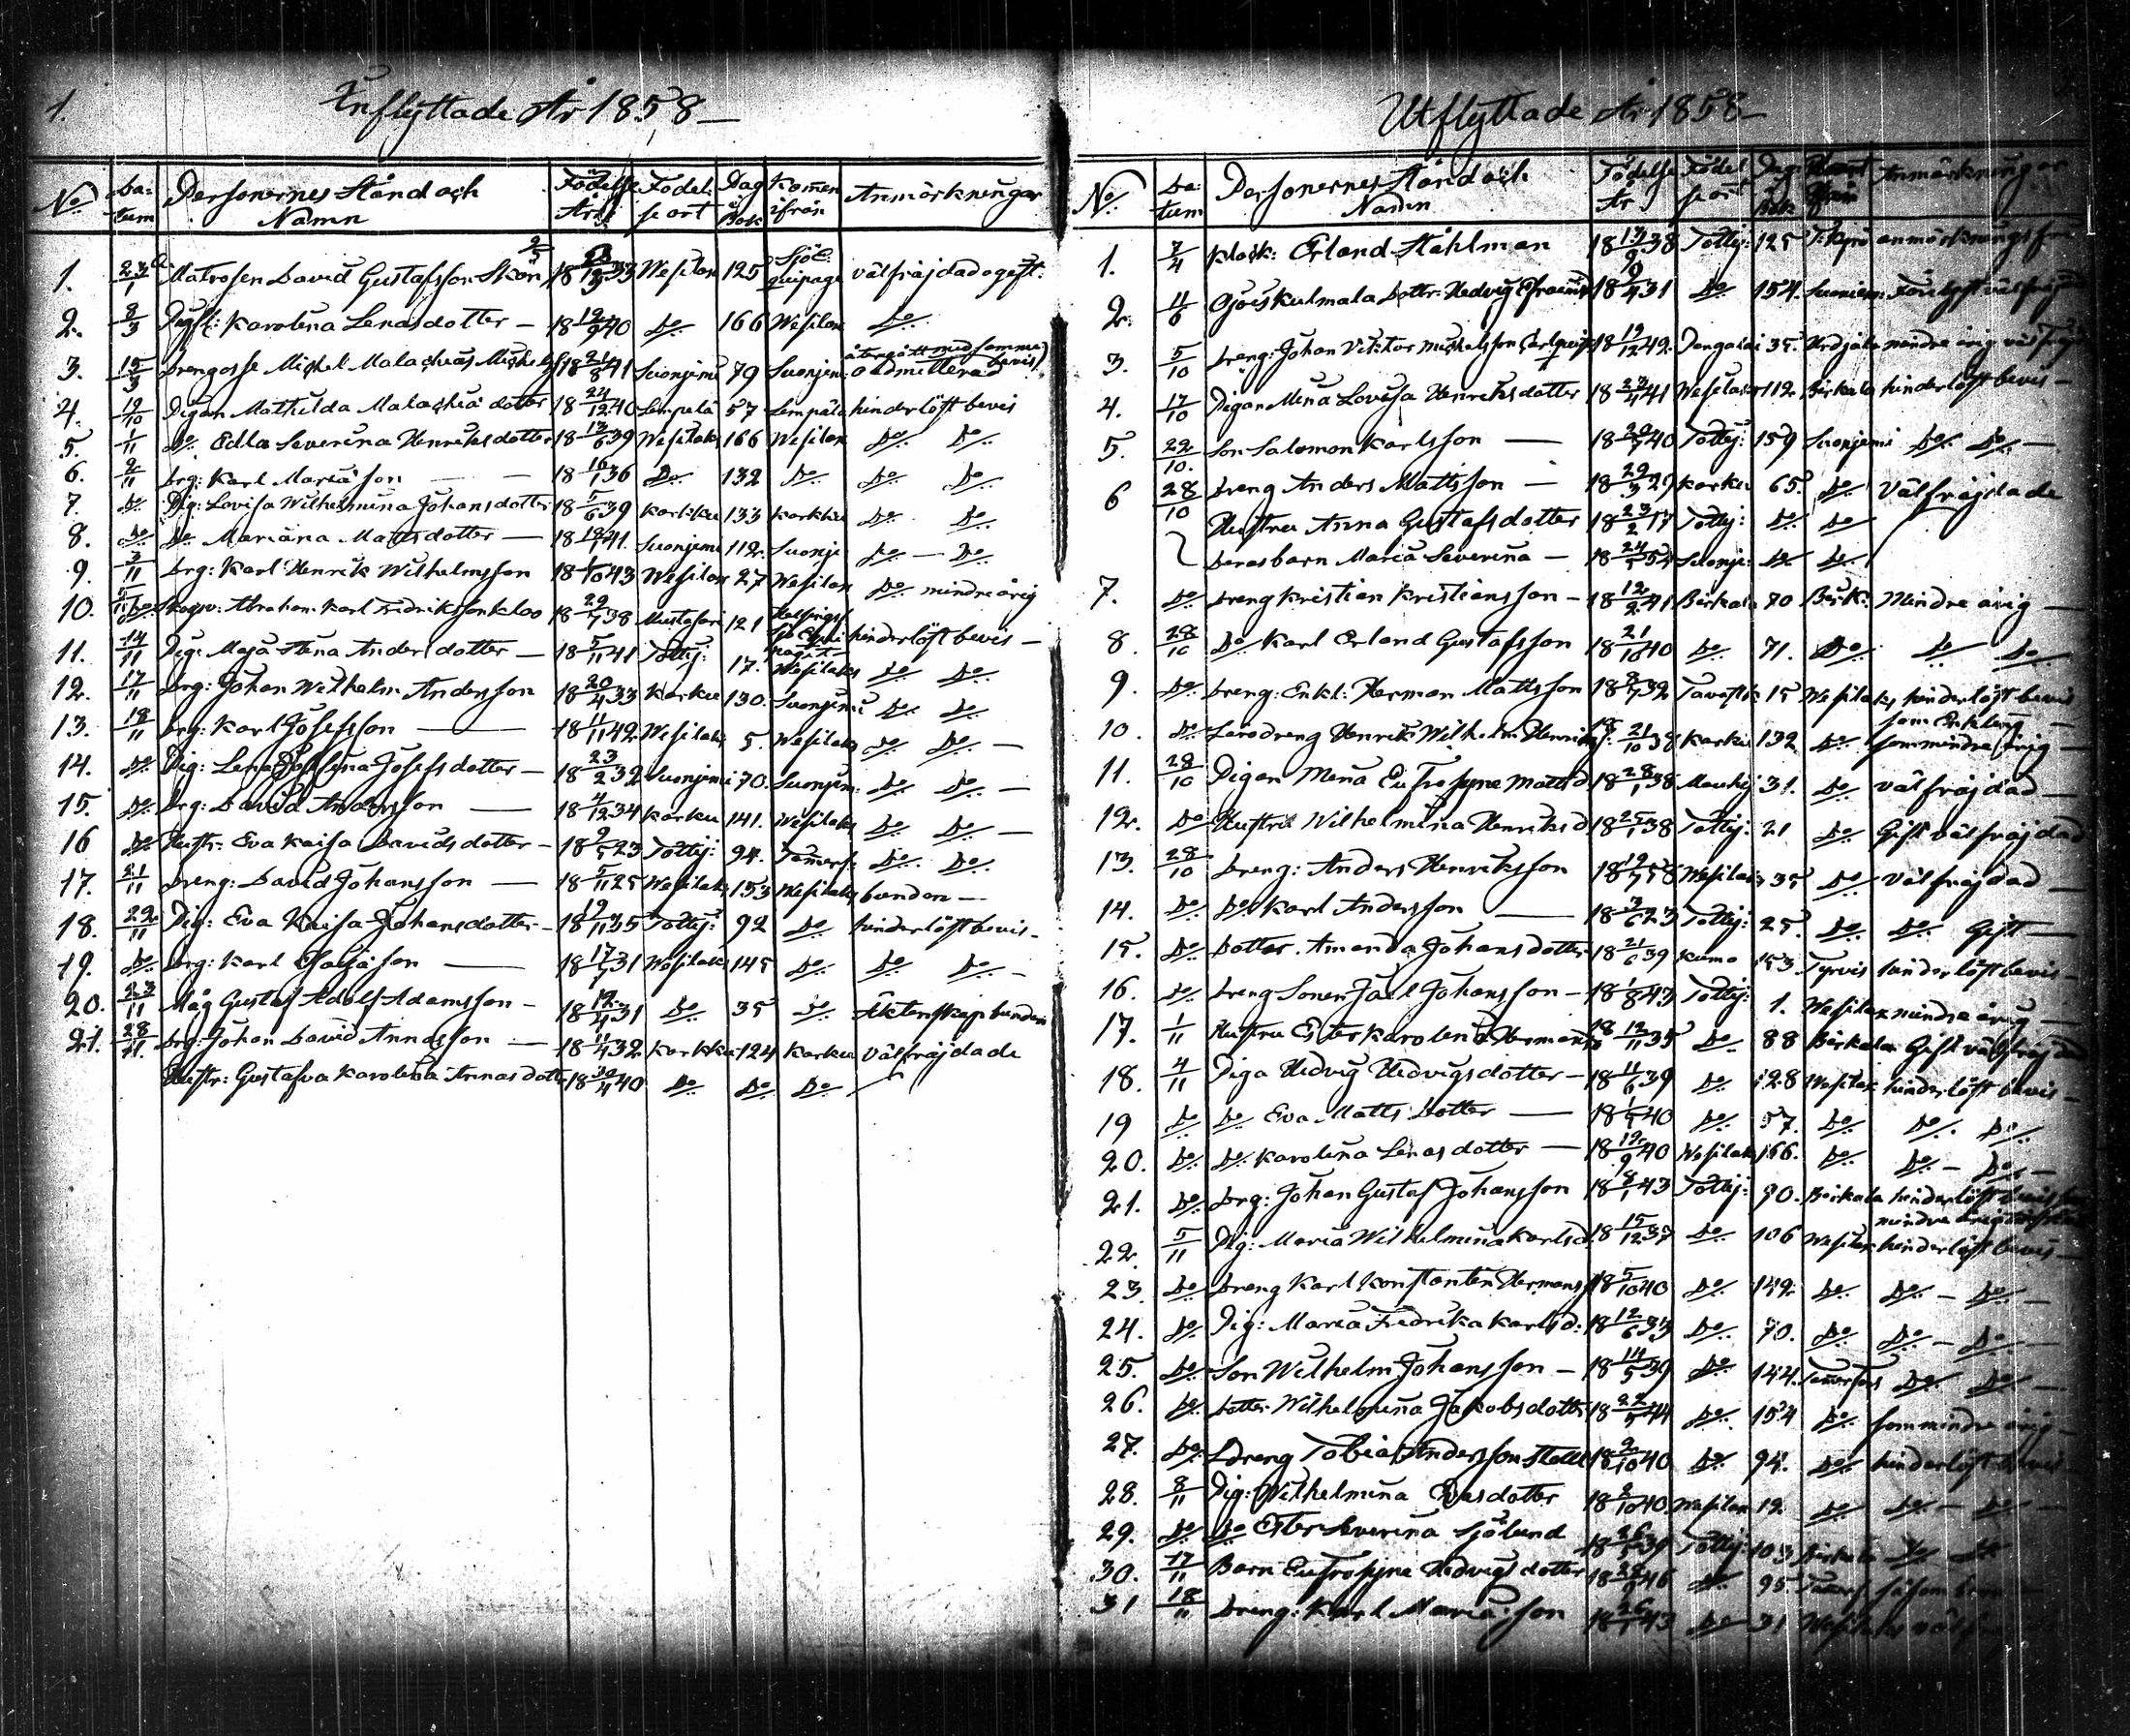 1.
Inflyttade År 1858
No Datum Personernes Stånd och Namn Födelse År Födelseort Pag i Bok Kommen ifrån Anmärkningar
1. 23/1 Matrosen David Gustafsson 18 33 Wesilax 125 Sjö Equipage välfräjdad ogift.
2. 8/3 Pig: Karolina Lenasdotter – 18 12/9 40 Do 166 Wesilax Do
3. 15/3 Drengosse Michel Malachias 18 21/8 41 Suonjemi 79 Suonjem: återgått med samma bevis oadmitterad
4. 19/10 Pigan Mathilda Malachiädotter 18 24/12 40 Lempälä 57 Lempälä hinderlöst bevis
5. 1/11 Do Edla Severina Henriksdotter 18 13/6 39 Wesilaks 166 Wesilax Do Do
6. 2/11 Drg: Karl Mariäson 18 10/1 36 Do 132 Do Do Do
7. Do Pig: Lovisa Wilhelmina Johansdotter 18 5/6 39 Karkku 133 Karkku Do Do
8. Do Do Mariana Mattsdotter – 18 41 Suonjemi 112 Suonje Do – Do
9. 3/11 Drg: Karl Henrik Wilhelmsson 18 /10 43 Wesilax 27 Wesilax Do mindreårig
10. 5/11 Abraham Karl Fredriksson 18 29/7 38 121 hinderlöst bevis –
11. 14/11 Pig: Maja Stina Andersdotter – 18 5/11 41 Tottij: 17. Wesilaks Do Do
12. 17/11 Drg: Johan Wilhelm Andersson 18 20/4 33 Karku 130. Suonjemi Do Do
13. 18/11 Drg: Karl Josefsson – 18 11/11 42 Wesilaks 5. Wesilaks Do Do –
14. Do Pig: Lena Josefina Josefsdotter – 18 23/2 32 Suonjemi 70. Suonjem: Do Do –
15. Do Drg: David Andersson – 18 4/12 34 Karku 141. Wesilaks Do Do –
16 Do Hustr: Eva Kaisa Davidsdotter – 18 9/5 23 Tottij: 94. Tamerf: Do Do
17. 21/11 Dreng: David Johansson – 18 5/11 25 Wesilaks 153 Wesilaks bunden –
18. 22/11 Pig: Eva Kaisa Johansdotter – 18 19/11 35 Tottij: 92 Do hinderlöst bevis –
19. Do Drg: Karl 18 17/7 31 Wesilaks 145 Do Do Do –
20. 23/11 Måg Gustaf Adolf Adamsson – 18 12/4 31 Do 35 Do Äktenskap bunden
21. 28/11 Drg: Johan David Annasson – 18 11/4 32 Karkku 124 Karku välfräjdade
Hustr: Gustafva Karolina Annasdott 18 30/4 40 Do Do Do
Utflyttade År 1858
No Datum Personernes Stånd och Namn Födelse År Födelseort Pag i Bok Anmärkningar
1. 7/4 Klock: Erland Ståhlman 18 13/9 38 Tottij: 125
2. 11/6 Hedvig 18 31 Do 154. Suoniem:
3. 5/10 Dreng: Johan Viktor Michelsson 18 19/12 42 35. Urdjala mindre årig
4. 17/10 Pigan Mina Lovisa Henriksdotter 18 23/4 41 Wesilaks 112 Birkala hinderlöst bevis –
5. 22/10. Son Salomon Karlsson – 18 20/7 40 Tottij: 159 Suonjemi Do Do –
6 28/10 Dreng Anders Mattsson – 18 22/3 29 Karku 65. Do välfräjdade
Hustru Anna Gustafsdotter 18 23/2 17 Tottij: Do Do
Deras barn Maria Severina – 18 24/5 54 Suonje: Do Do
7. Do Dreng Kristian Kristiansson – 18 12/2 41 Birkala 70 Birk: Mindre årig –
8. 28/10 Do Karl Erland Gustafsson 18 21/10 40 Do 71. Do Do Do
9. Do Dreng: Enkl: Herman Mattsson 18 8/7 32 15 Wesilaks hinderlöst bevis som Enkling –
10. Do Henrik Wilhelm 18 21/10 38 Karku 132 Do som mindre årig –
11. 28/10 Pigan Mina Eufrosyne Mattsd 18 28/1 38 31. Do välfräjdad –
12. Do Hustru Wilhelmina Henriksd 18 25/1 38 Tottij: 21 Do Gift välfräjdad
13. 28/10 Dreng: Anders Henriksson 18 19/7 Wesilaks 35 Do välfräjdad –
14. Do Do Karl Andersson – 18 3/6 23 Tottij: 25. Do Do Gift –
15. Do Dotter. Amanda Johansdotter 18 21/6 39 Kumo 153 Tyrvis hinderlöst bevis –
16. Do Dreng Sonen Johansson – 18 1/8 43 Tottij: 1. Wesilax mindre årig –
17. 1/11 Hustru Ester Karolina 18 12/11 35 Do 88 Birkala Gift välfräjdad
18. 4/11 Piga Hedvig Hedvigsdotter – 18 11/6 39 Do 128 Wesilax hinderlöst bevis –
19 Do Do Eva Matts dotter – 18 1/5 40 Do 57. Do Do Do
20. Do Do Karolina Lenasdotter – 18 12/9 40 Wesilaks 166. Do Do – Do –
21. Do Drg: Johan Gustaf Johansson 18 8/1 43 Tottij: 90. Birkala hinderlöst bevis mindre årig
22. 5/11 Pig: Maria Wilhelmina Karlsd: 18 15/12 37 Do 106 Wesilax hinderlöst bevis –
23. Do Dreng Karl Konstantin Hermanss 18 5/10 40 Do 149. Do Do – Do –
24. Do Pig: Maria Fredrika Karlsd: 18 12/6 33 Do 70. Do Do – Do –
25. Do Son Wilhelm Johansson – 18 14/5 39 Do 144. Do Do –
26. Do Dotter Wilhelmina Jakobsdott: 18 22/5 44 Do 154 Do som mindre årig –
27. Do Dreng Tobias Andersson 18 2/10 40 Do 94. Do hinderlöst bevis
28. 8/11 Pig: Wilhelmina Evasdotter 18 2/10 40 Wesilax 12. Do Do – Do –
29. Do Do Ester Severina Sjölund 18 26/5 39 Tottij: 103 Birkala Do Do
30. 17/11 Barn Eufrosyne Hedvigsdotter 18 46 Do 95
31 18/11 Dreng: Karl Mariäson 18 26/1 43 Do 31